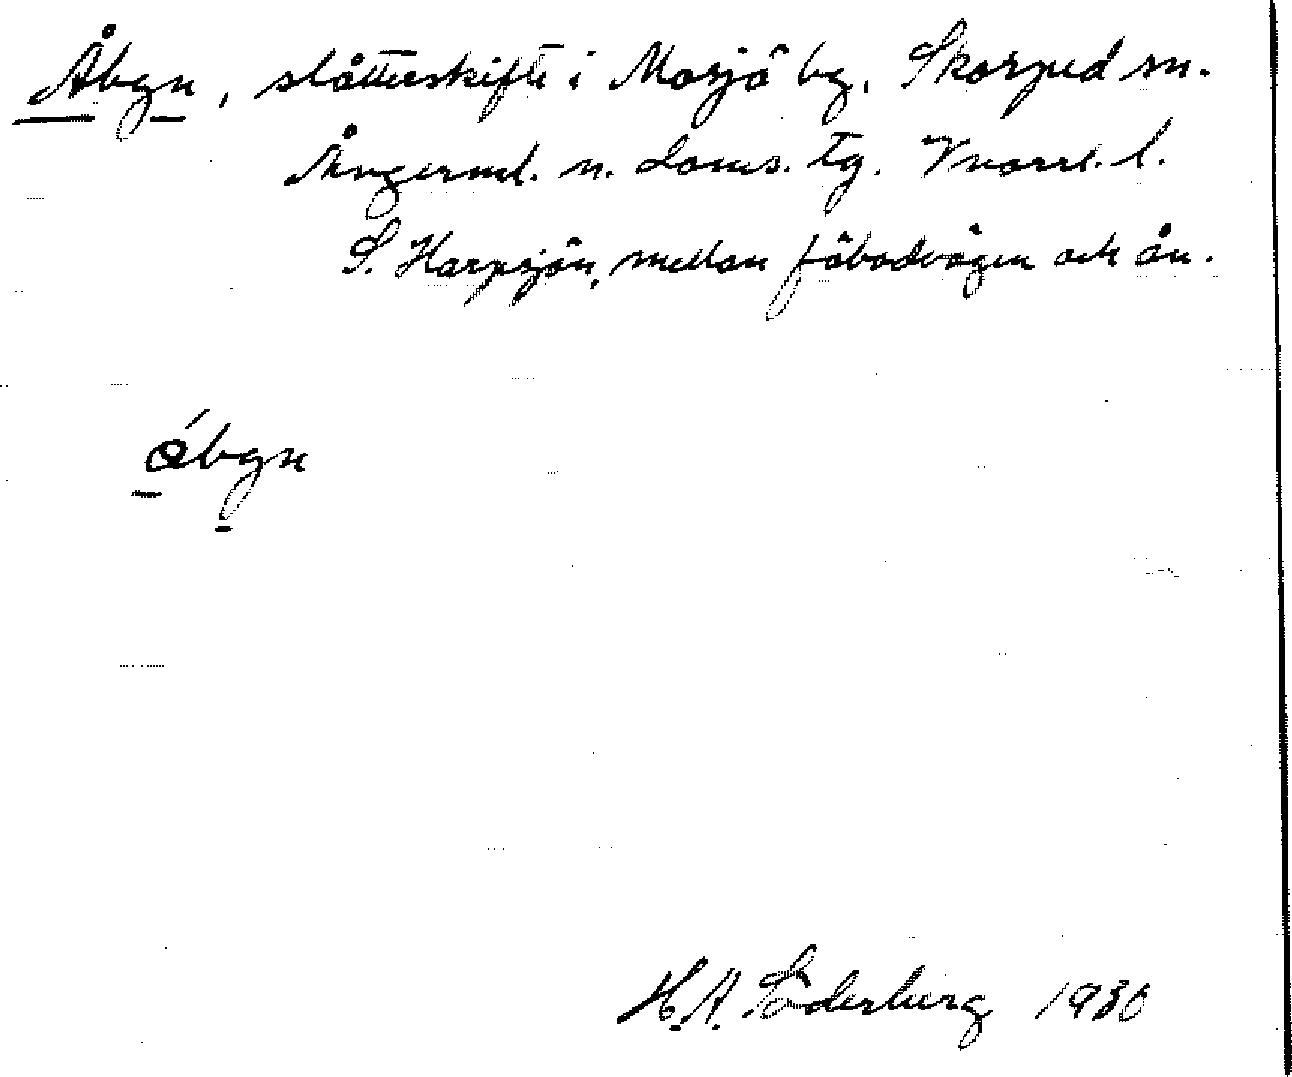 Åbgn, slåtterskifte i Mosjö by, Skorped sn.
Ångerml. n. doms. tg. Vnorrl. l.
S. Harpsjön, mellan fäbodvägen och ån.
ábgn
H.A. Söderberg 1930